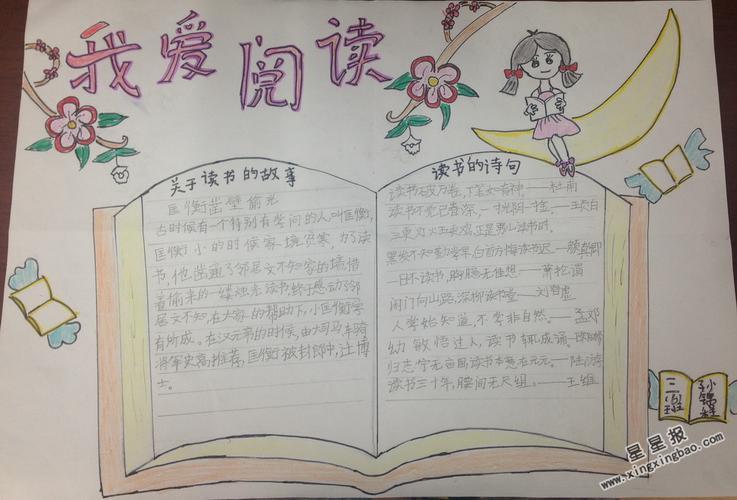 我爱阅读
关于读书的故事
匡衡凿壁偷光
古时候有一个特别有学问的人,叫匡衡,
匡衡小的时候家境贫寒,为了读
书,他凿通了邻居文不知家的墙借
着偷来的一缕烛光读书,终于感动了邻
居文不知,在大家的帮助下,小匡衡学
有所成。在汉元帝的时候,由大司马车骑
将军史高推荐,匡衡被封郎中,迁博
士。
读书的诗句
读书破万卷,下笔如有神。——杜甫
读书不觉已春深,一寸光阴一寸金。——王贞白
三更灯火五更鸡,正是男儿读书时。
黑发不知勤学早,白首方悔读书迟。——颜真卿
一日不读书,胸臆无佳想。——萧抡谓
闭门向山路,深柳读书堂。——刘昚虚
人学始知道,不学非自然。——孟郊
幼敏悟过人,读书辄成诵。
归志宁无五亩园,读书本意在元元。——陆游
读书三十年,腰间无尺组。——王维
三
班
孙
星星报
www.xingxingbao.com